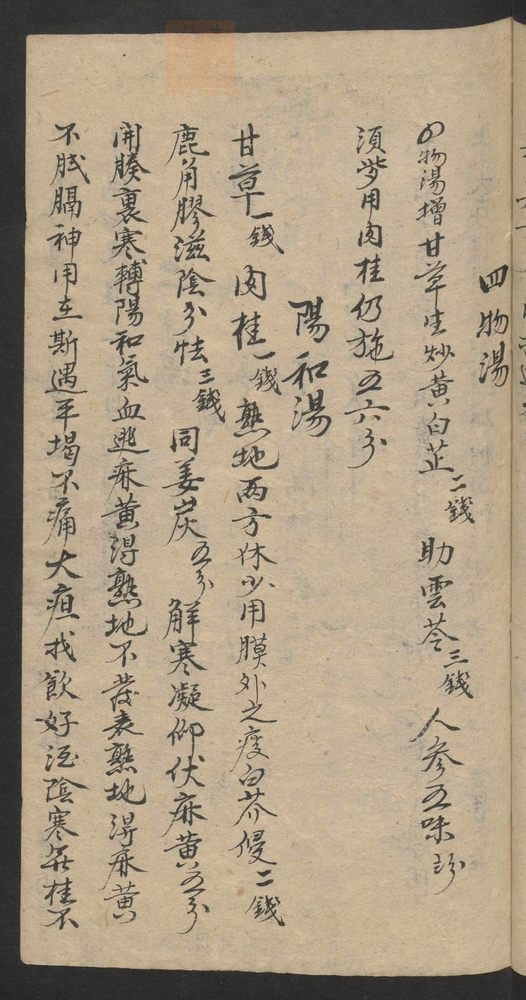 四物湯
四物湯增甘草生炒黃白芷二錢助雲苓三錢人參五味
須當用肉桂仍施五六分
陽和湯
甘草一錢肉桂一錢熟地两方休少用膜外之痰白芥侵二錢
鹿角膠滋陰分怯三錢同姜炭五分解寒凝仰伏麻黃五分
開腠裏寒轉陽和氣血進麻黃得熟地不發表熟地得麻黃
不膩膈神用在斯遇平塌不痛大疽我飲好酒陰寒無桂不